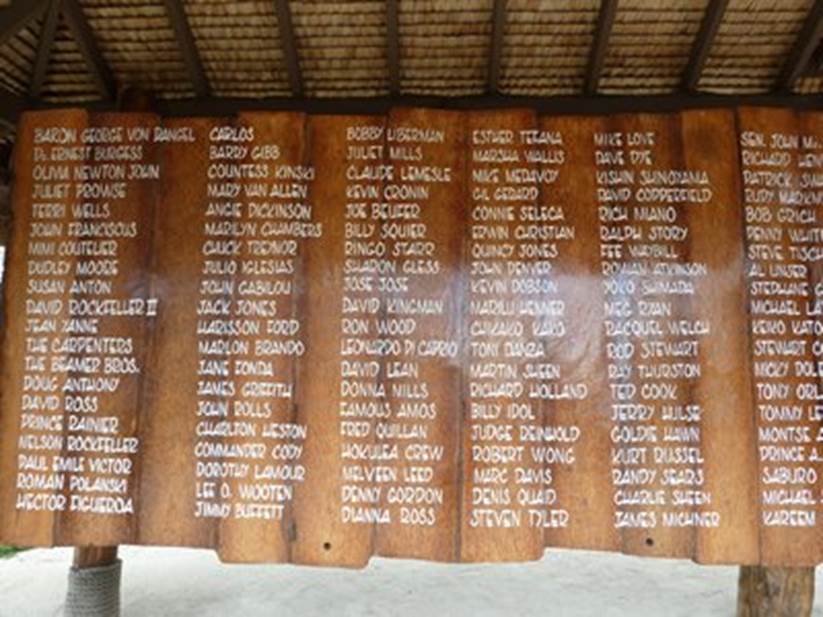 BARON GEORGE VON RANGEL
Dr. ERNEST BURGESS
OLIVIA NEWTON JOHN
JULIET PROWSE
TERRI WELLS
JOHN FRANCISCUS
MIMI COUTELIER
DUDLEY MOORE
SUSAN ANTON
DAVID ROCKFELLER II
JEAN YANNE
THE CARPENTERS
THE BEAMER BROS.
DOUG ANTHONY
DAVID ROSS
PRINCE RAINIER
NELSON ROCKFELLER
PAUL EMILE VICTOR
ROMAN POLANSKI
HECTOR FIGUEROA
CARLOS
BARRY GIBB
COUNTESS KINSKI
MARY VAN ALLEN
ANGIE DICKINSON
MARILYN CHAMBERS
CHUCK TREYNOR
JULIO IGLESIAS
JOHN GABILOU
JACK JONES
HARISSON FORD
MARLON BRANDO
JANE FONDA
JAMES GRIFFITH
JOHN ROLLS
CHARLTON HESTON
COMMANDER CODY
DOROTHY LAMOUR
LEE O. WOOTEN
JIMMY BUFFETT
BOBBY LIBERMAN
JULIET MILLS
CLAUDE LEMESLE
KEVIN CRONIN
JOE BEUFER
BILLY SQUIER
RINGO STARR
SHARON GLESS
JOSE JOSE
DAVID KINGMAN
RON WOOD
LEONARDO DI CAPRIO
DAVID LEAN
DONNA MILLS
FAMOUS AMOS
FRED QUILLAN
HOKULEA CREW
MELVEEN LEED
DENNY GORDON
DIANNA ROSS
ESTHER TEEANA
MARSHA WALLIS
MIKE MEDAVOY
GIL GERARD
CONNIE SELECA
ERWIN CHRISTIAN
QUINCY JONES
JOHN DENVER
KEVIN DOBSON
MARILU HENNER
CHIKAKO KAKO
TONY DANZA
MARTIN SHEEN
RICHARD HOLLAND
BILLY IDOL
JUDGE REINHOLD
ROBERT WONG
MARC DAVIS
DENIS QUAID
STEVEN TYLER
MIKE LOVE
DAVE DYE
KISHIN SHINOYAMA
DAVID COPPERFIELD
RICH MIANO
RALPH STORY
FEE WAYBILL
ROWAN ATKINSON
YOKO SHIMADA
MEG RYAN
RACQUEL WELCH
ROD STEWART
RAY THURSTON
TED COOK
JERRY HULSE
GOLDIE HAWN
KURT RUSSEL
RANDY SEARS
CHARLIE SHEEN
JAMES MICHNER
SEN. JOHN
RICHARD
PATRICK
RUDY
BOB GRICH
DENNY
STEVE
AL UNSER
STEPHANE
MICHAEL
KEIKO
STEWART
MICKY
TONY
TOMMY
MONTSE
PRINCE
SABURO
MICHAEL
KAREEM